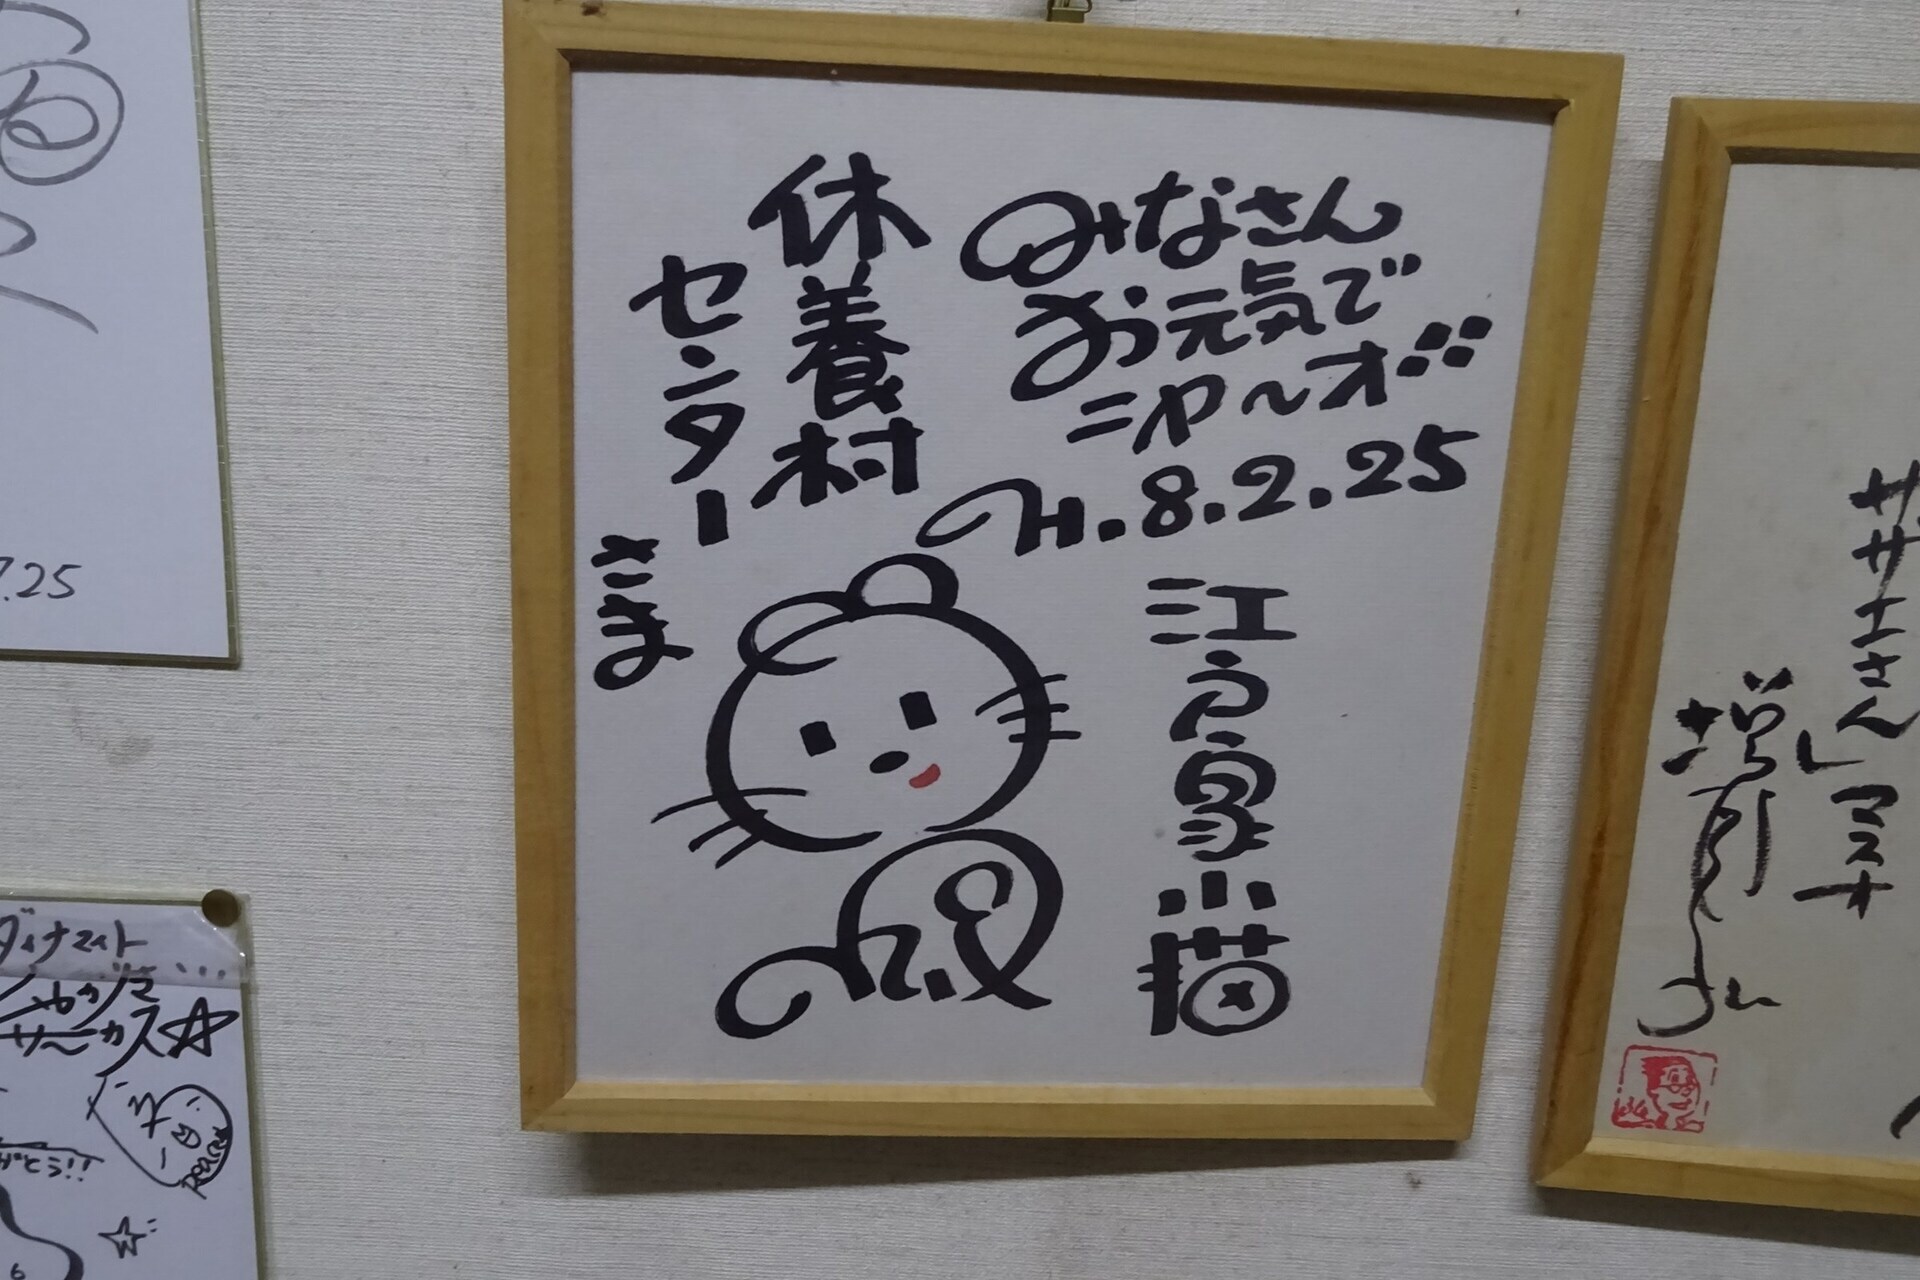 みなさん
お元気で
ニャ〜オ
H.8.2.25
休養村
センター
さま
江戸家小猫
サザエさん
マスオ
増岡弘
.25
ダイナマイト
シャカリキ
サーカス☆
がとう!!